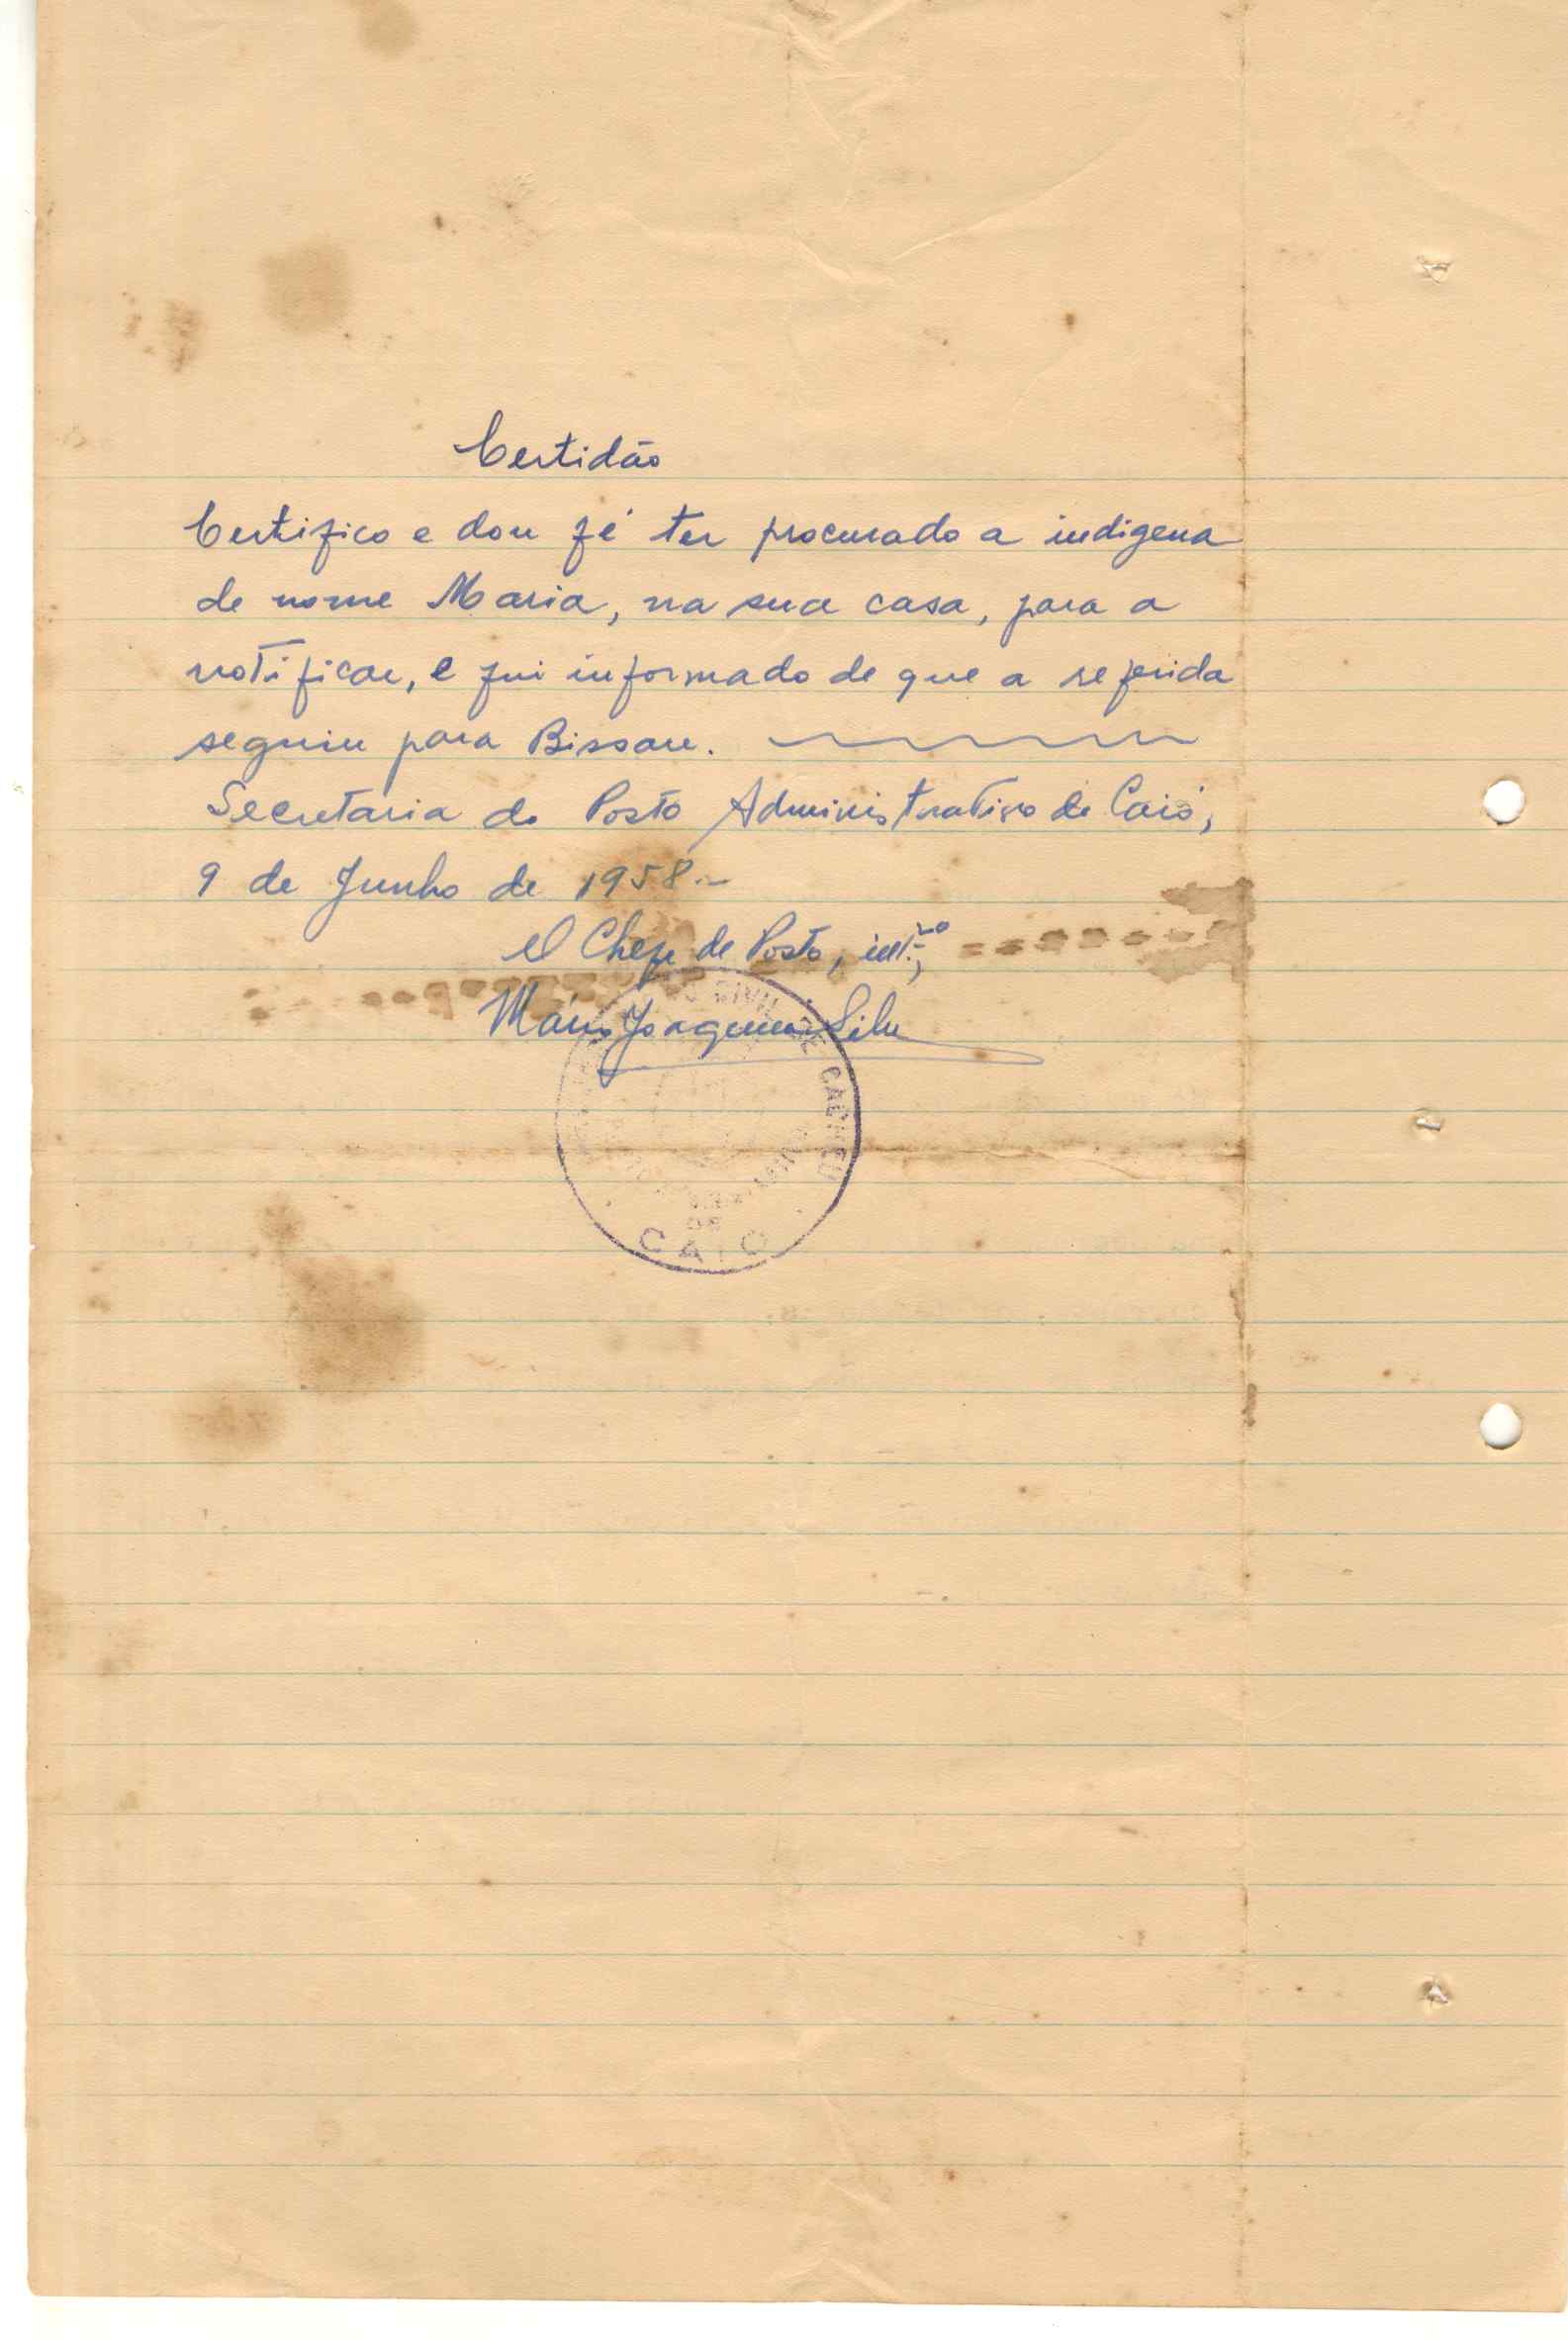 Certidão
Certifico e dou fé ter procurado a indigena
de nome Maria, na sua casa, para a
notificar, e fui informado de que a referida
seguiu para Bissau.
Secretaria do Posto Administrativo de Caió,
9 de Junho de 1958.-
O Chefe de Posto, int.ro,
Mário Joaquim Silva
CIVIL DE CACHEU
DE
CAIO